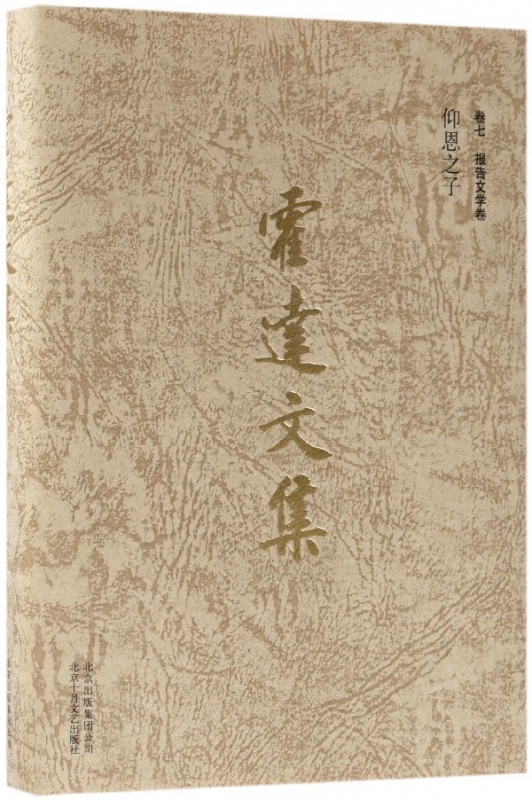 卷七 报告文学卷
仰恩之子
霍达文集
北京出版集团公司
北京十月文艺出版社